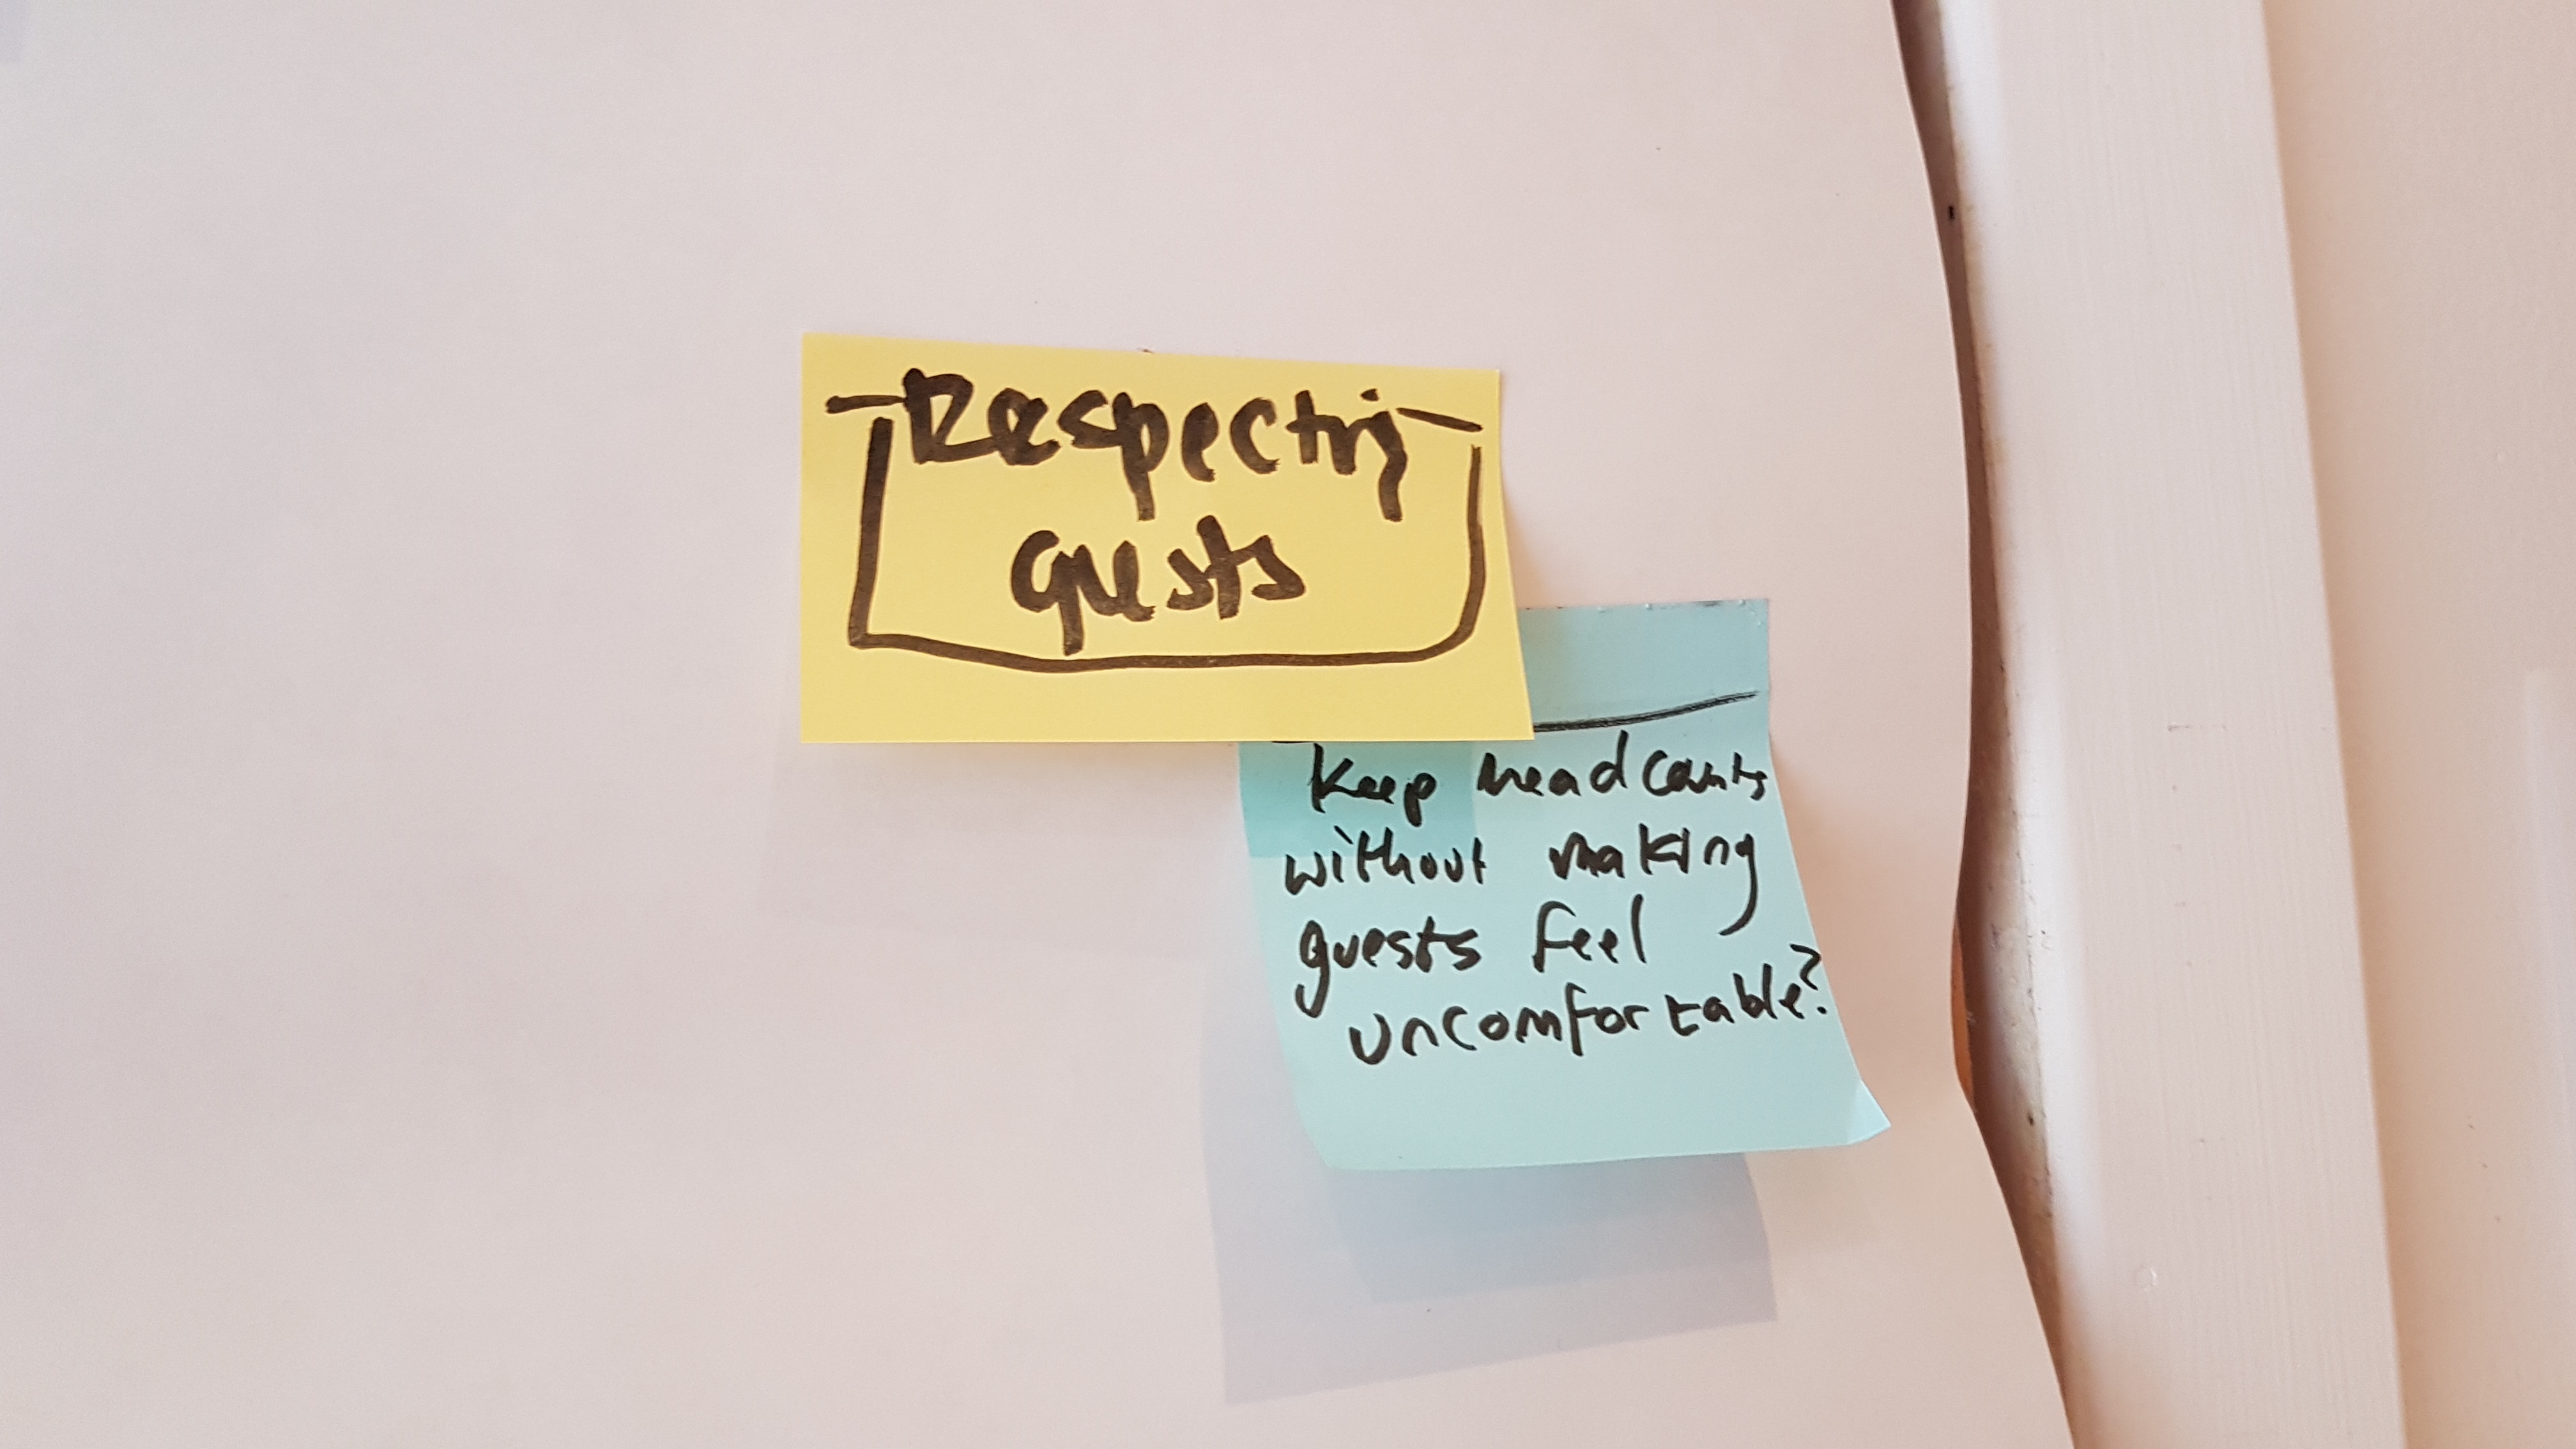 Respecting
guests
keep headcounts
without making
guests feel
uncomfortable?